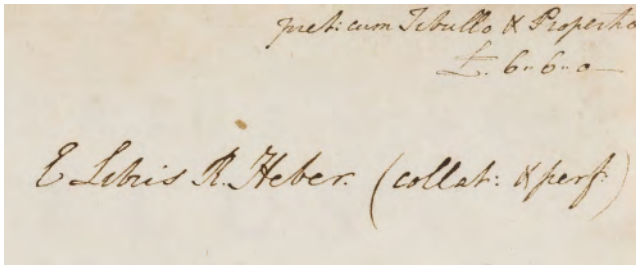 pret: cum Tibullo & Propertio
£. 6 .. 6 .. 0
E Libris R. Heber. (collat: & perf:)